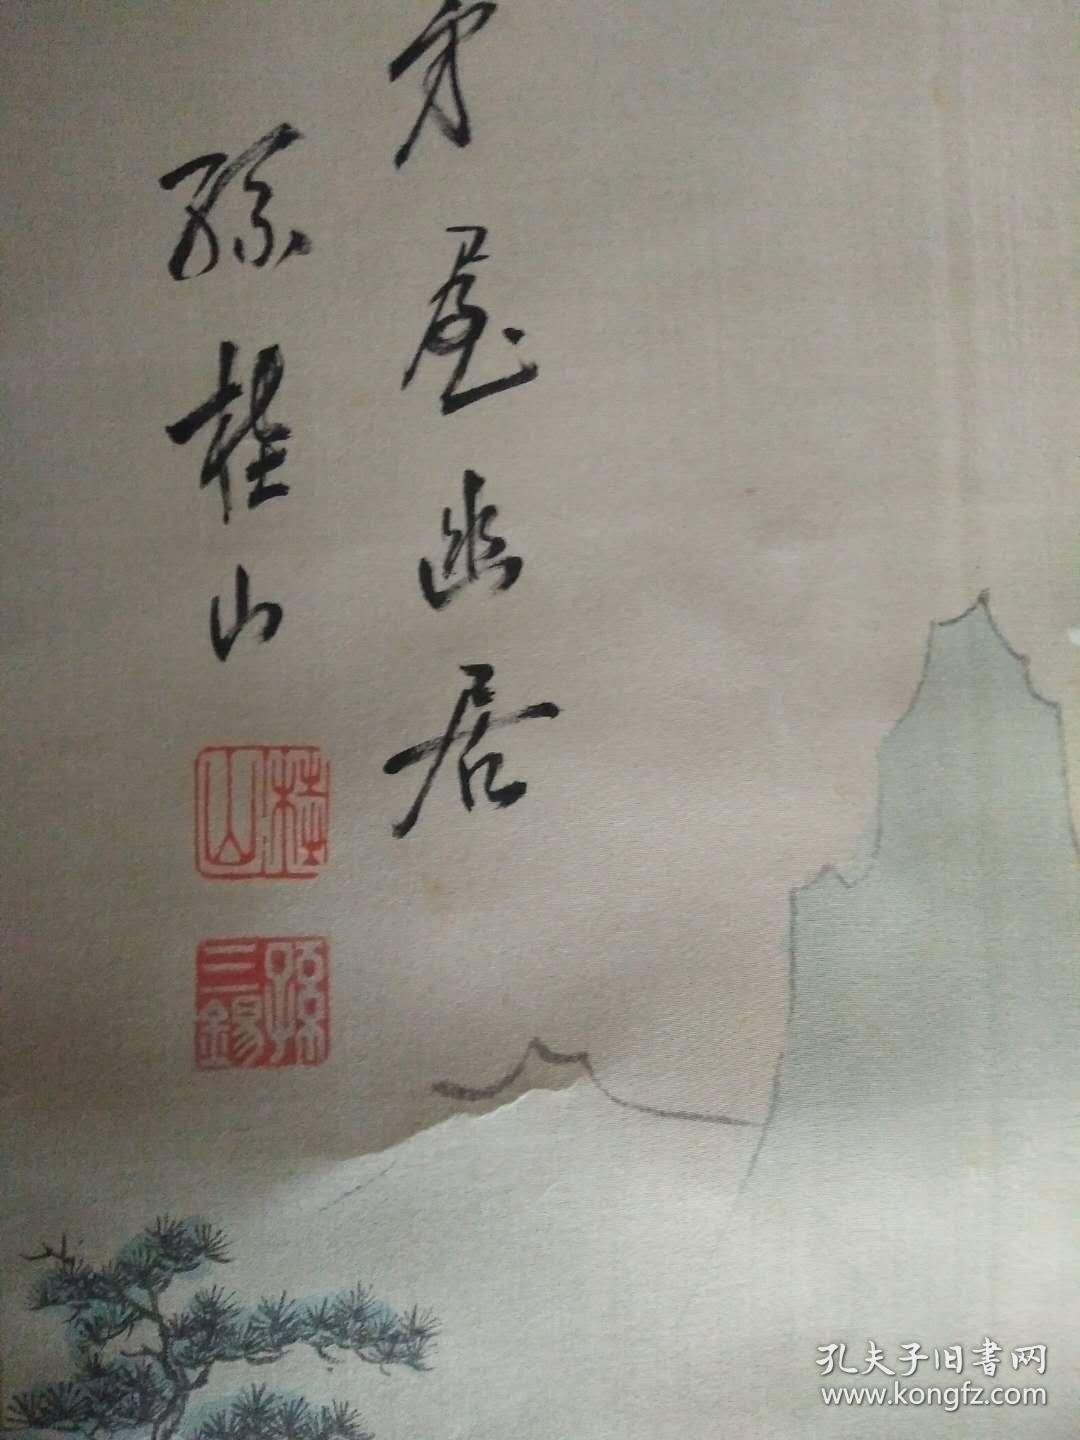 茅屋幽居
孫桂山
桂山
孫三錫
孔夫子旧書网
www.kongfz.com